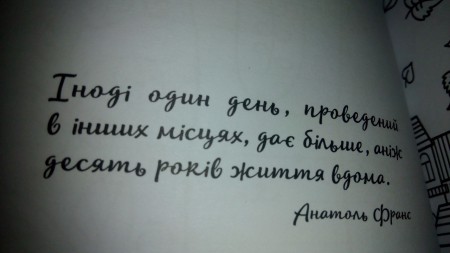 Іноді один день, проведений
в інших місцях, дає більше, аніж
десять років життя вдома.
Анатоль Франс